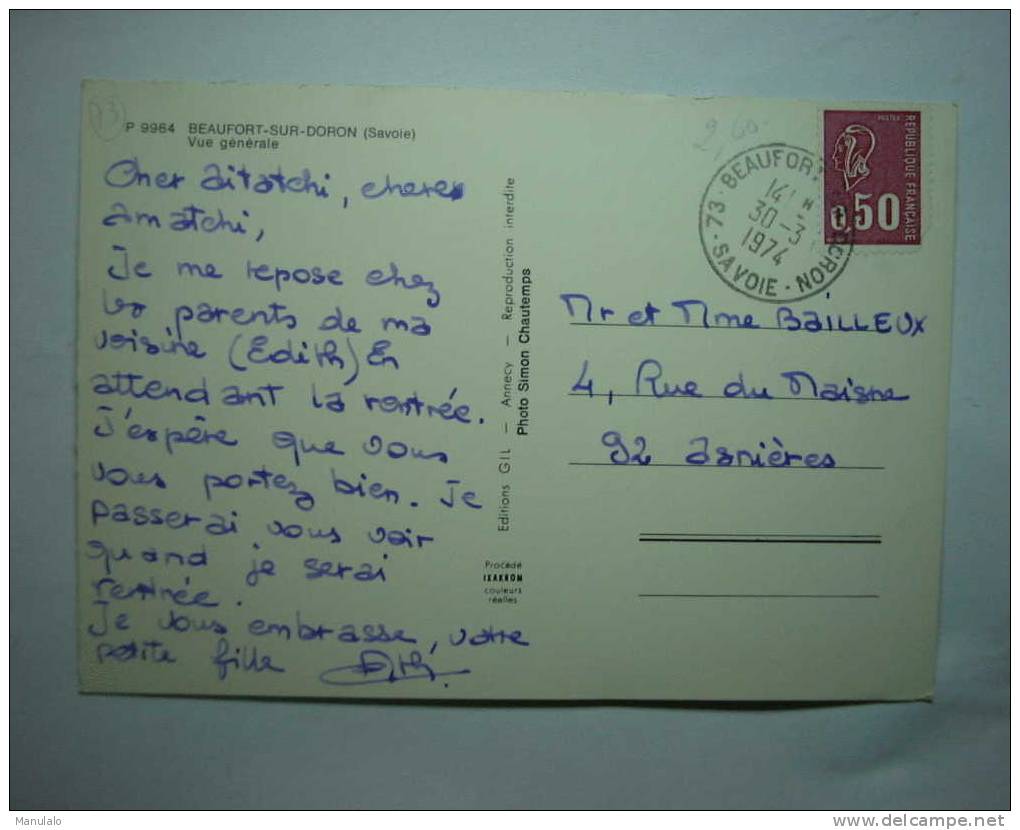 73
P 9964 BEAUFORT-SUR-DORON (Savoie)
Vue générale
Cher aitatchi, chere
amatchi,
Je me repose chez
les parents de ma
voisine (Edith) En
attendant la rentrée.
J'espère que vous
vous portez bien. Je
passerai vous voir
quand je serai
rentrée.
Je vous embrasse, votre
petite fille
Editions GIL — Annecy — Reproduction interdite
Photo Simon Chautemps
Procédé
IXAKROM
couleurs
réelles
73 - BEAUFORT DORON
14 H
30-3
1974
SAVOIE
POSTES
REPUBLIQUE FRANÇAISE
0,50
Mr et Mme BAILLEUX
4, Rue du Maisne
92 Asnières
Manulalo
www.delcampe.net